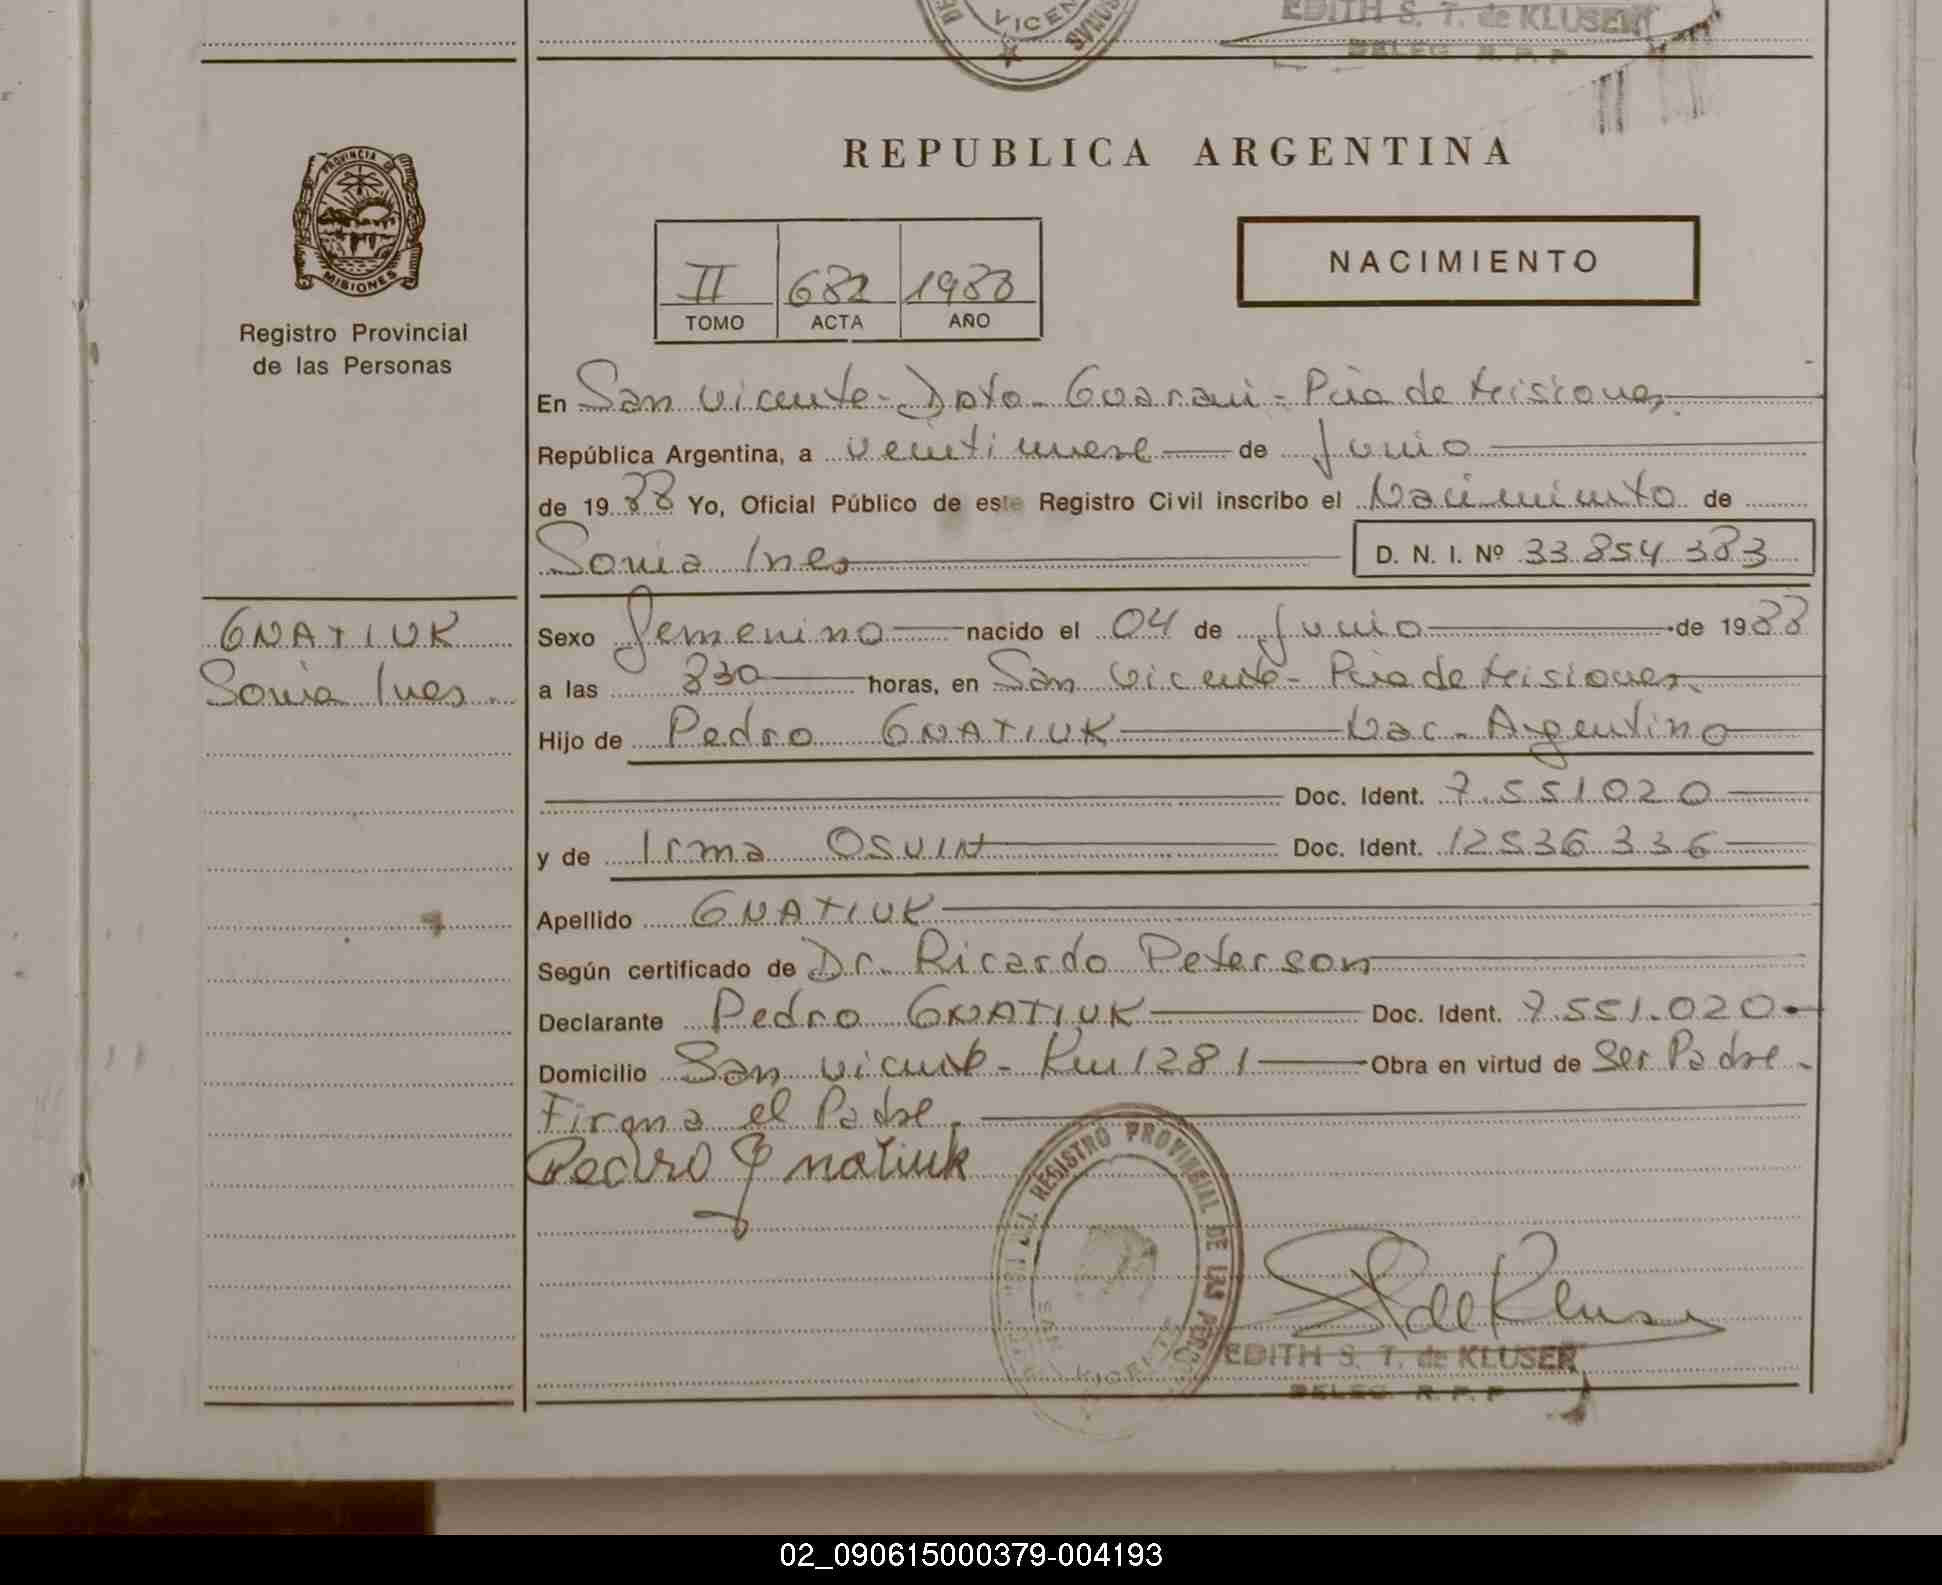 VICEN
EDITH S. T. de KLUSER
DELEG. R. P. P
PROVINCIA DE
MISIONES
Registro Provincial
de las Personas
REPUBLICA ARGENTINA
II 682 1988
TOMO ACTA AÑO
NACIMIENTO
En San Vicente - Dpto. Guarani - Pcia de Misiones
República Argentina, a veintinueve de Junio
de 1988 Yo, Oficial Público de este Registro Civil inscribo el Nacimiento de
Sonia Ines D. N. I. Nº 33.854.383
GNATIUK
Sonia Ines
Sexo femenino nacido el 04 de Junio de 1988
a las 830 horas, en San Vicente - Pcia de Misiones
Hijo de Pedro GNATIUK Nac. Argentino
Doc. Ident. 7.551.020
y de Irma OSUIN Doc. Ident. 12536336
Apellido GNATIUK
Según certificado de Dr. Ricardo Peterson
Declarante Pedro GNATIUK Doc. Ident. 7.551.020
Domicilio San Vicente - Km 1281 Obra en virtud de Ser Padre.
Firma el Padre.
Pedro Gnatiuk
REGISTRO PROVINCIAL DE LAS PERSONAS
SAN VICENTE
EDITH S. T. de KLUSER
DELEG. R. P. P
02_090615000379-004193